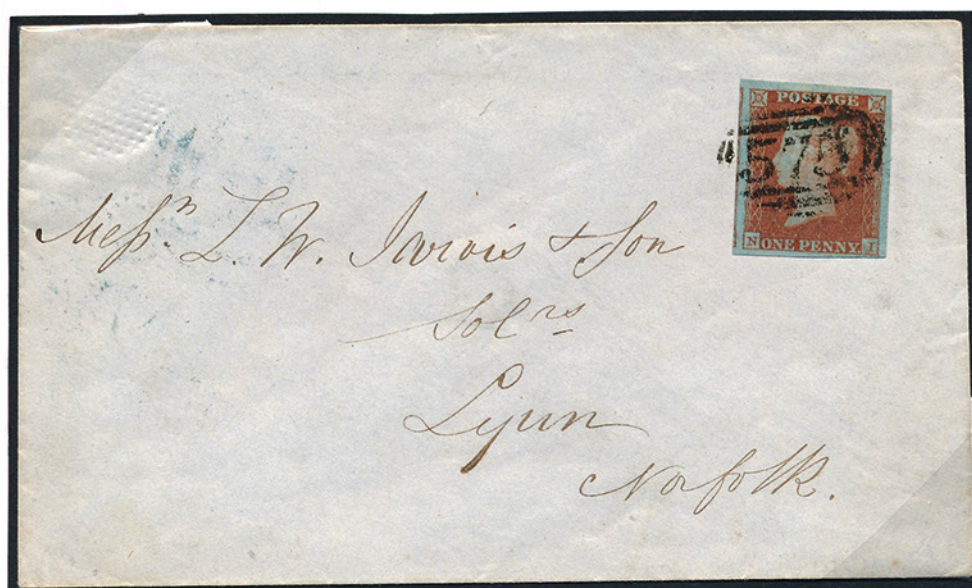 POSTAGE
575
N ONE PENNY I
Messrs L. W. Jarvis & Son
Solrs
Lynn
Norfolk.